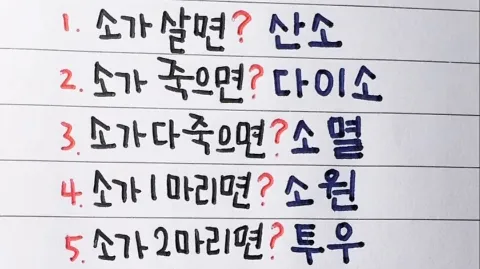 1. 소가 살면? 산소
2. 소가 죽으면? 다이소
3. 소가 다 죽으면? 소멸
4. 소가 1마리면? 소원
5. 소가 2마리면? 투우